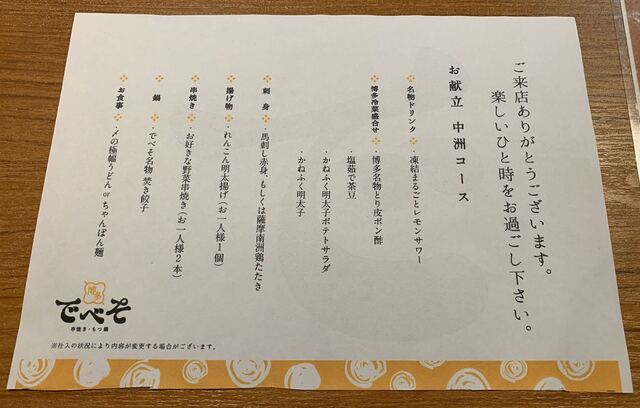 ご来店ありがとうございます。
楽しいひと時をお過ごし下さい。
お献立 中洲コース
名物ドリンク
・凍結まるごとレモンサワー
博多冷菜盛合せ
・博多名物とり皮ポン酢
・塩茹で茶豆
・かねふく明太子ポテトサラダ
・かねふく明太子
刺身
・馬刺し赤身、もしくは薩摩南洲鶏たたき
揚げ物
・れんこん明太揚げ(お一人様1個)
串焼き
・お好きな野菜串焼き(お一人様2本)
鍋
・でべそ名物 焚き餃子
お食事
・〆の極幅うどん or ちゃんぽん麺
博多
でべそ
串焼き・もつ鍋
※仕入の状況により内容が変更する場合がございます。